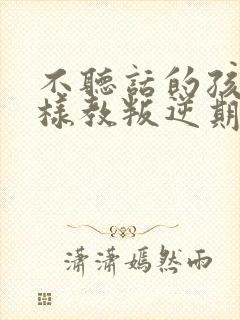 不聽話的孩
樣教叛逆期
瀟瀟嫣然雨